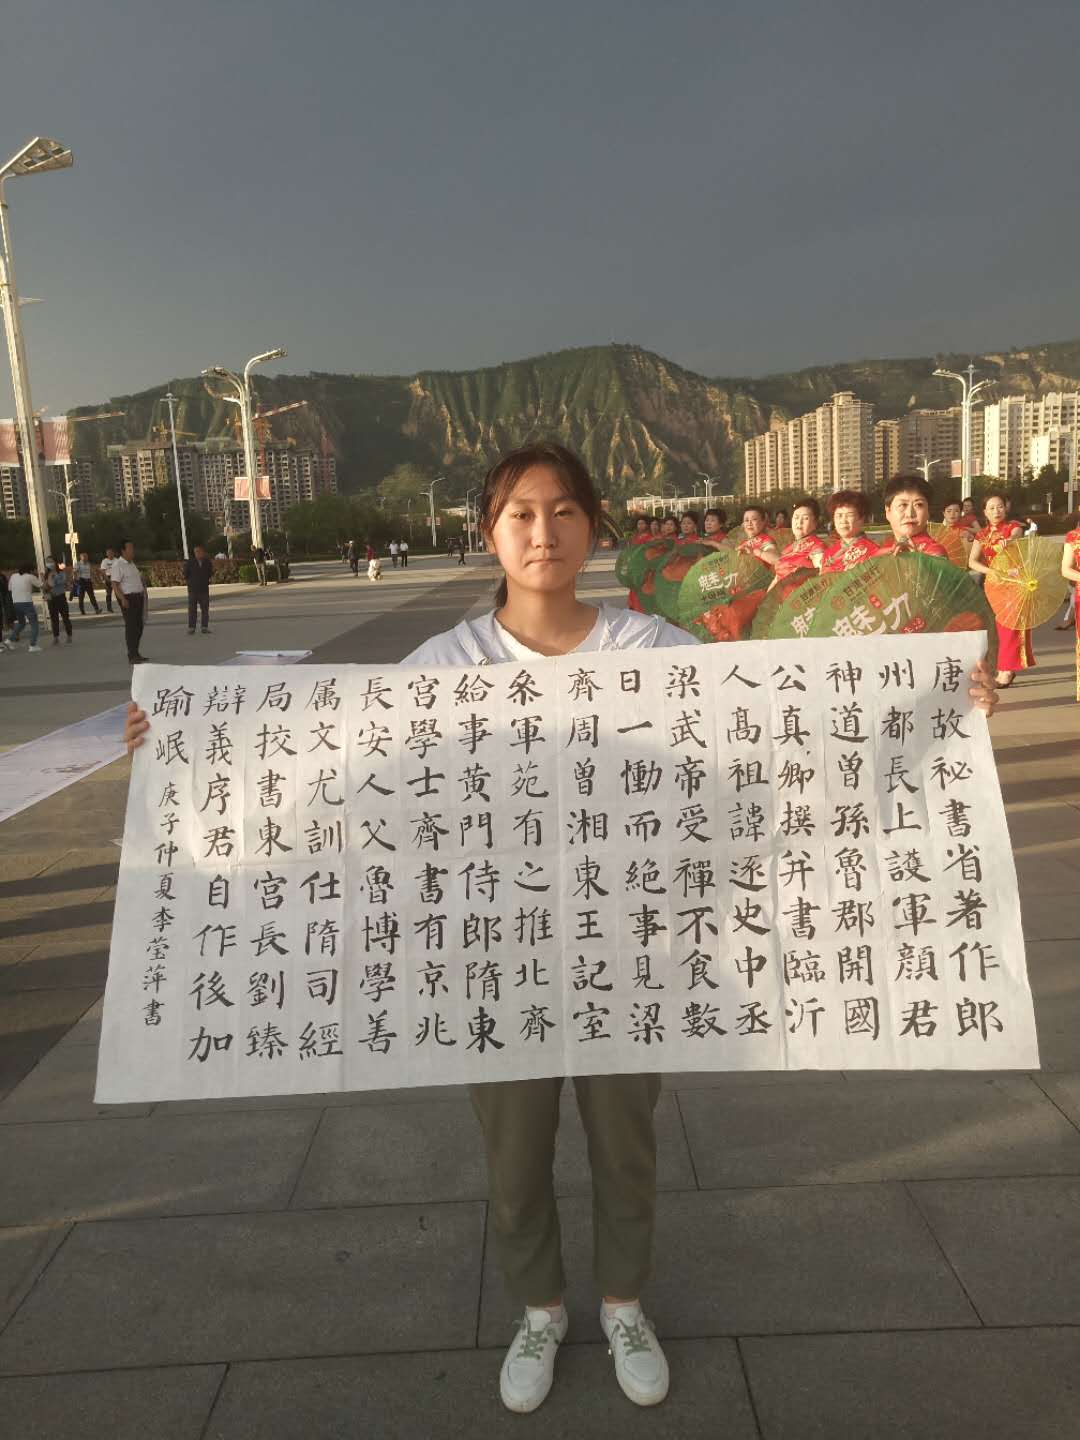 唐故祕書省著作郎
州都長上護軍顔君
神道曾孫魯郡開國
公真卿撰并書臨沂
人髙祖諱逐史中丞
梁武帝受禪不食數
日一慟而絶事見梁
齊周曾湘東王記室
叅軍苑有之推北齊
給事黄門侍郎隋東
宫學士齊書有京兆
長安人父魯博學善
属文尤訓仕隋司經
局挍書東宫長劉臻
辯義序君自作後加
踰岷 庚子仲夏李莹萍書
魅力
魅力
魅力